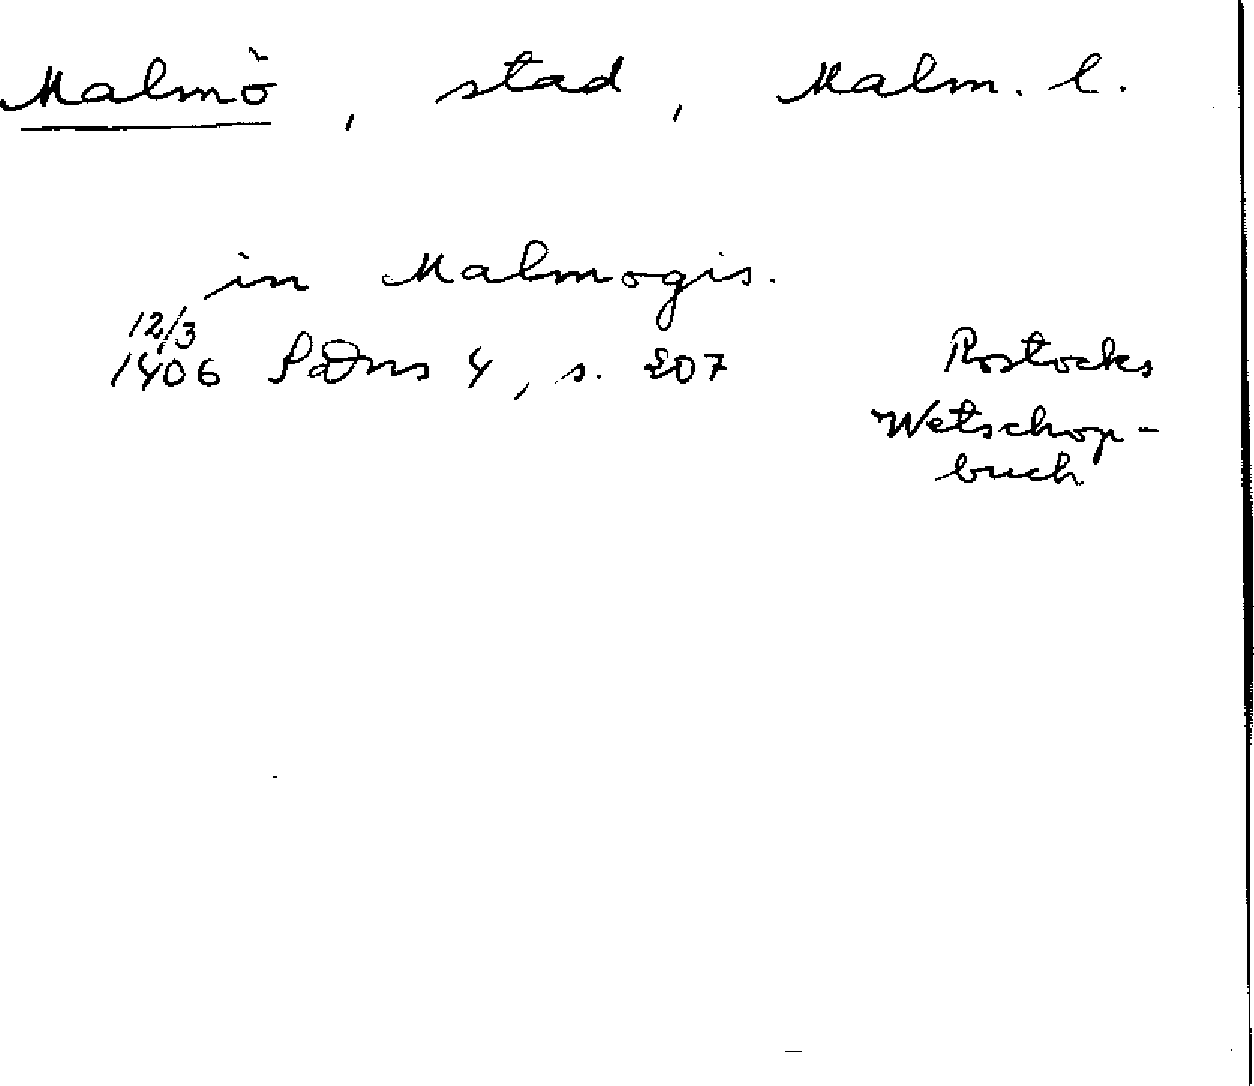 Malmö, stad, Malm. l.
in Malmogis.
12/3
1406 SaDns 4, s. 207 Rostocks
Wetschop-
buch